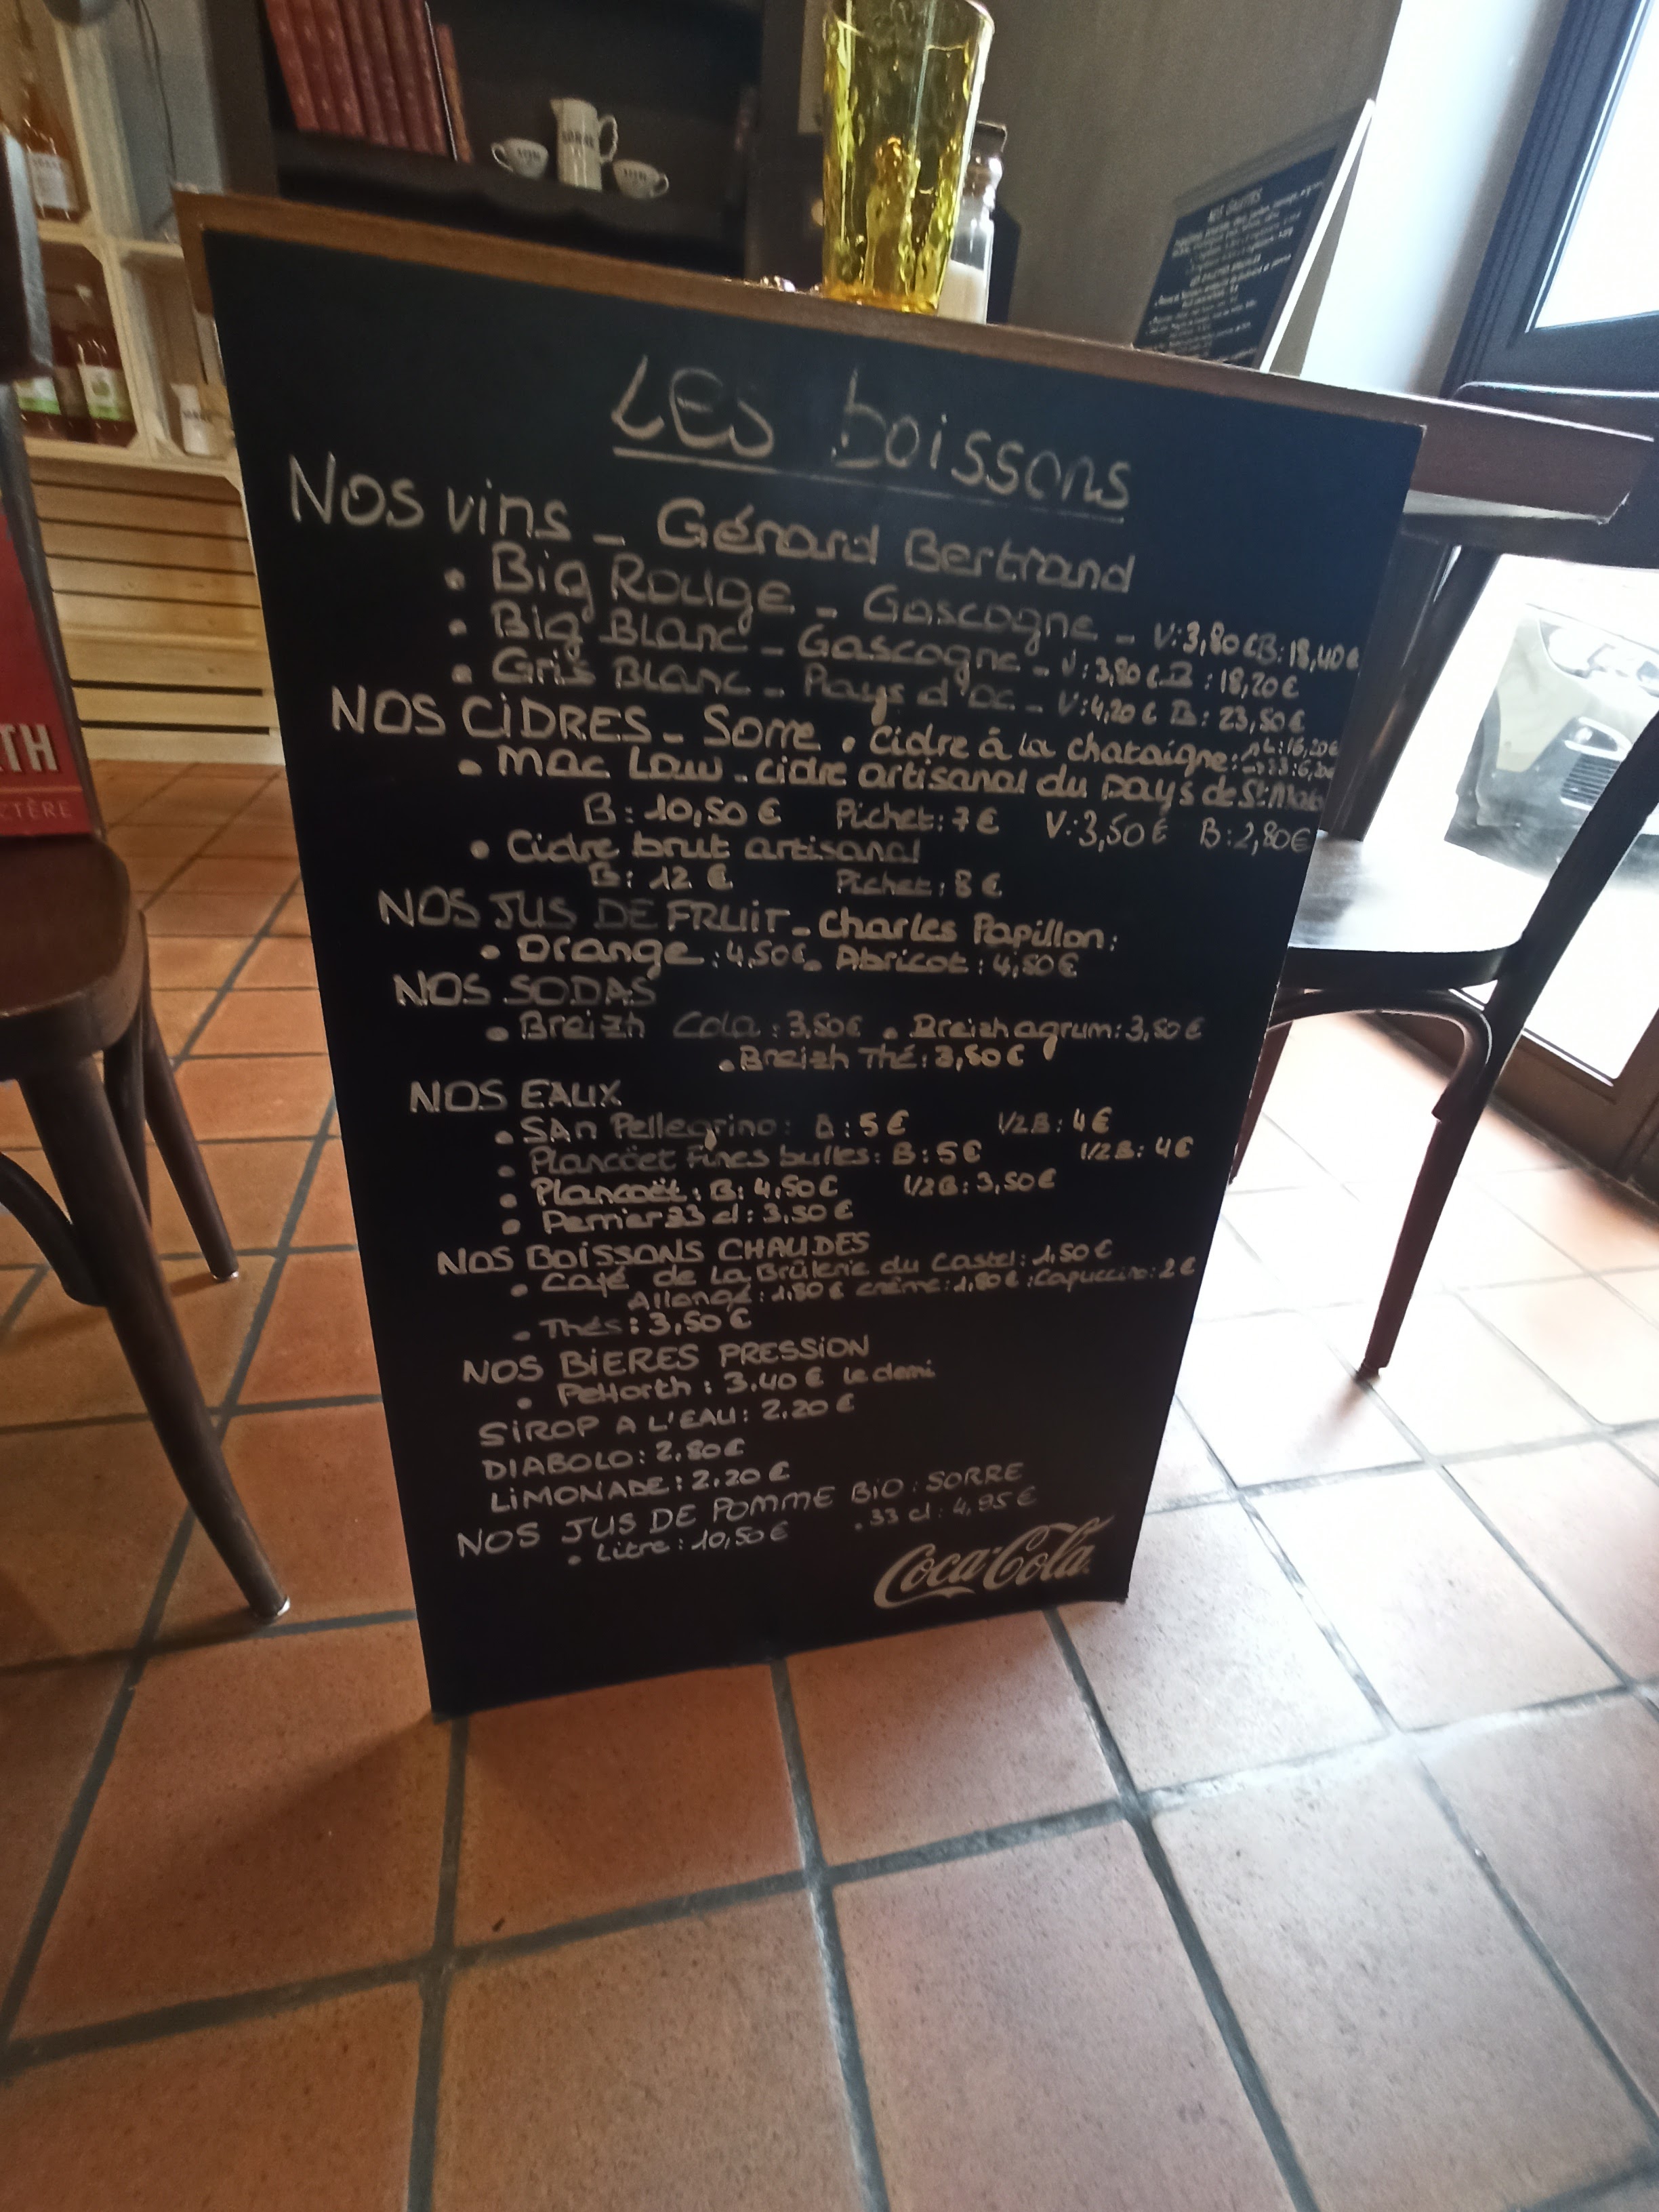 LES boissons
NOS vins - Gérard Bertrand
• Big Rouge - Gascogne - V:3,80€ B:18,40€
• Big Blanc - Gascogne - V:3,80€ B:18,20€
• Gris Blanc - Pays d'oc - V:4,20€ B: 23,50€
NOS CIDRES - Sorre • Cidre à la chataigne: 1L:16,20€
• Mac Law - cidre artisanal du pays de St Malo
B: 10,50€ Pichet: 7€ V:3,50€ B:2,80€
• Cidre brut artisanal
B: 12 € Pichet: 8€
NOS JUS DE FRUIT - Charles Papillon:
• Orange: 4,50€ • Abricot: 4,50€
NOS SODAS
• Breizh Cola: 3,50€ • Breizh agrum: 3,50€
• Breizh Thé: 3,50€
NOS EAUX
• SAn Pellegrino: B: 5€ 1/2B: 4€
• Plancoët Fines bulles: B: 5€ 1/2B: 4€
• Plancoët: B: 4,50€ 1/2B: 3,50€
• Perrier 33 cl: 3,50€
NOS BOISSONS CHAUDES
• Café de La Brûlerie du Castel: 1,50€
Allongé: 1,80€ crème: 1,80€ : Capuccino: 2€
- Thés: 3,50€
NOS BIERES PRESSION
• Pelforth: 3.40€ le demi
SIROP A L'EAU: 2.20€
DIABOLO: 2.80€
LIMONADE: 2.20€
NOS JUS DE POMME BIO: SORRE
• Litre: 10,50€ . 33 cl: 4,95€
Coca-Cola
TH
CTÈRE
NOS GALETTES